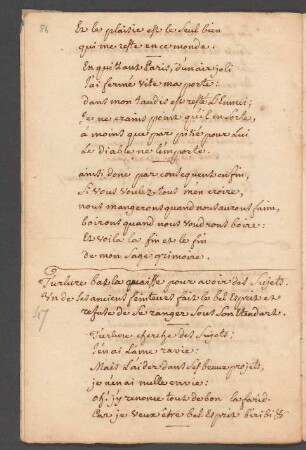 84
Et le plaisir est le seul bien
qui me reste en ce monde.
En quittant Paris, d'un air joli
J'ai fermé vite ma porte:
dans mon taudis est resté l'ennui;
Je ne crains point qu'il en sorte,
à moins que par pitié pour lui
Le diable ne l'emporte.
ainsi donc par consequent enfin,
Si vous voulez tous m'en croire,
nous mangerons quand nous aurons faim,
boirons quand nous voudrons boire:
Et voila la fin et le fin
de mon sage grimoire.
Turlure bat la quaisse pour avoir des Sujets.
Un de ses anciens feinteurs fait le bel Esprit et
refuse de se ranger sous son Etendart.
47
Turlure cherche des Sujets:
J'en ai l'ame ravie:
Mais l'aider dans ses beaux projets,
je n'en ai nulle envie:
oh! j'y renonce tout de bon la farid.
Car je veux être bel Esprit biribi &